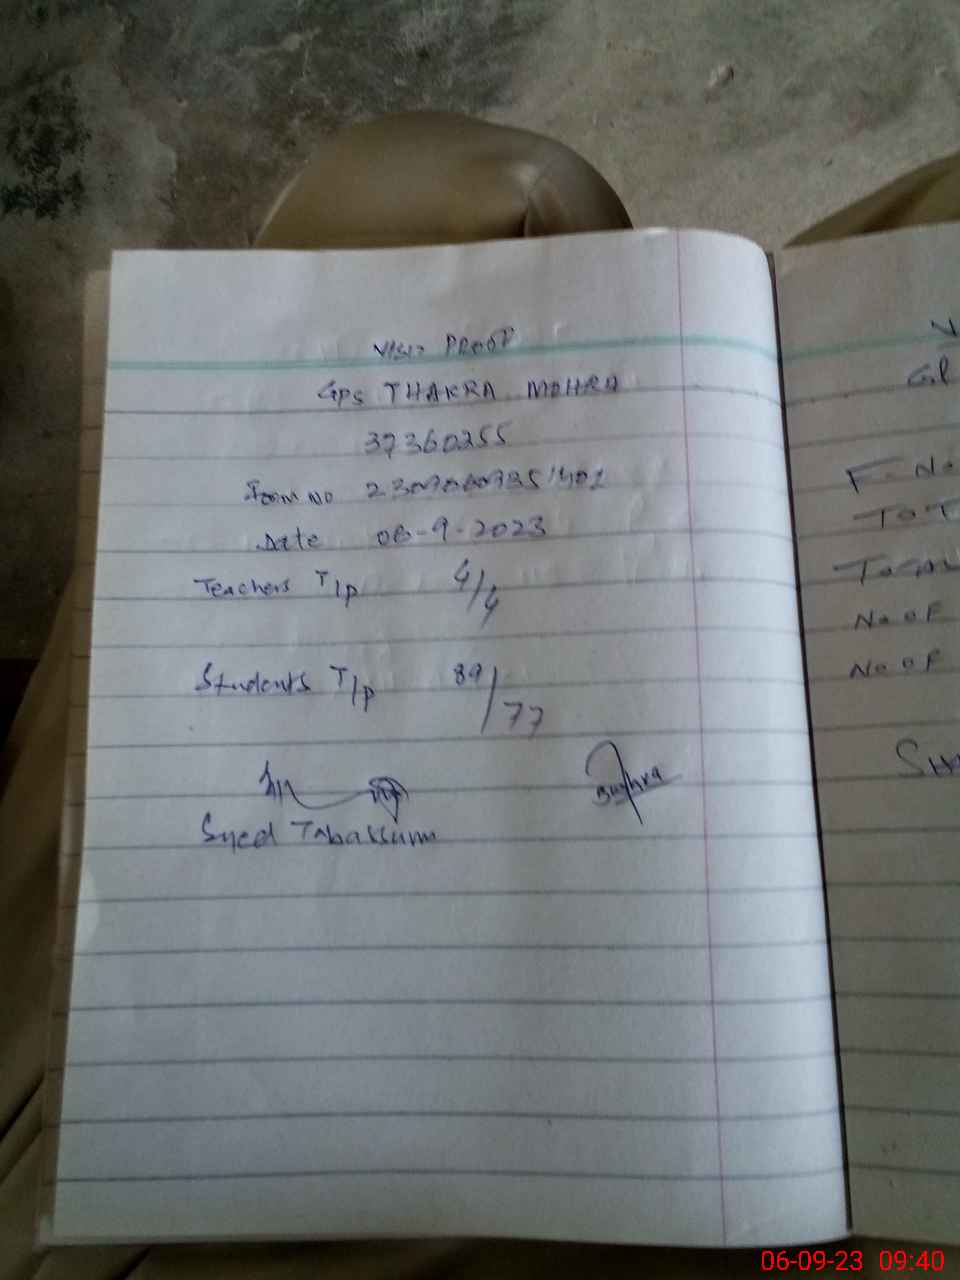 Visit PROOF
GPS THAKRA MOHRA
37360255
Form No
Date 06-9-2023
Teachers T/p 4/4
Students T/p 89/77
Syed Tabassum
Bushra
V
GP
F-No
TOT
Total
No OF
No OF
SH
06-09-23 09:40